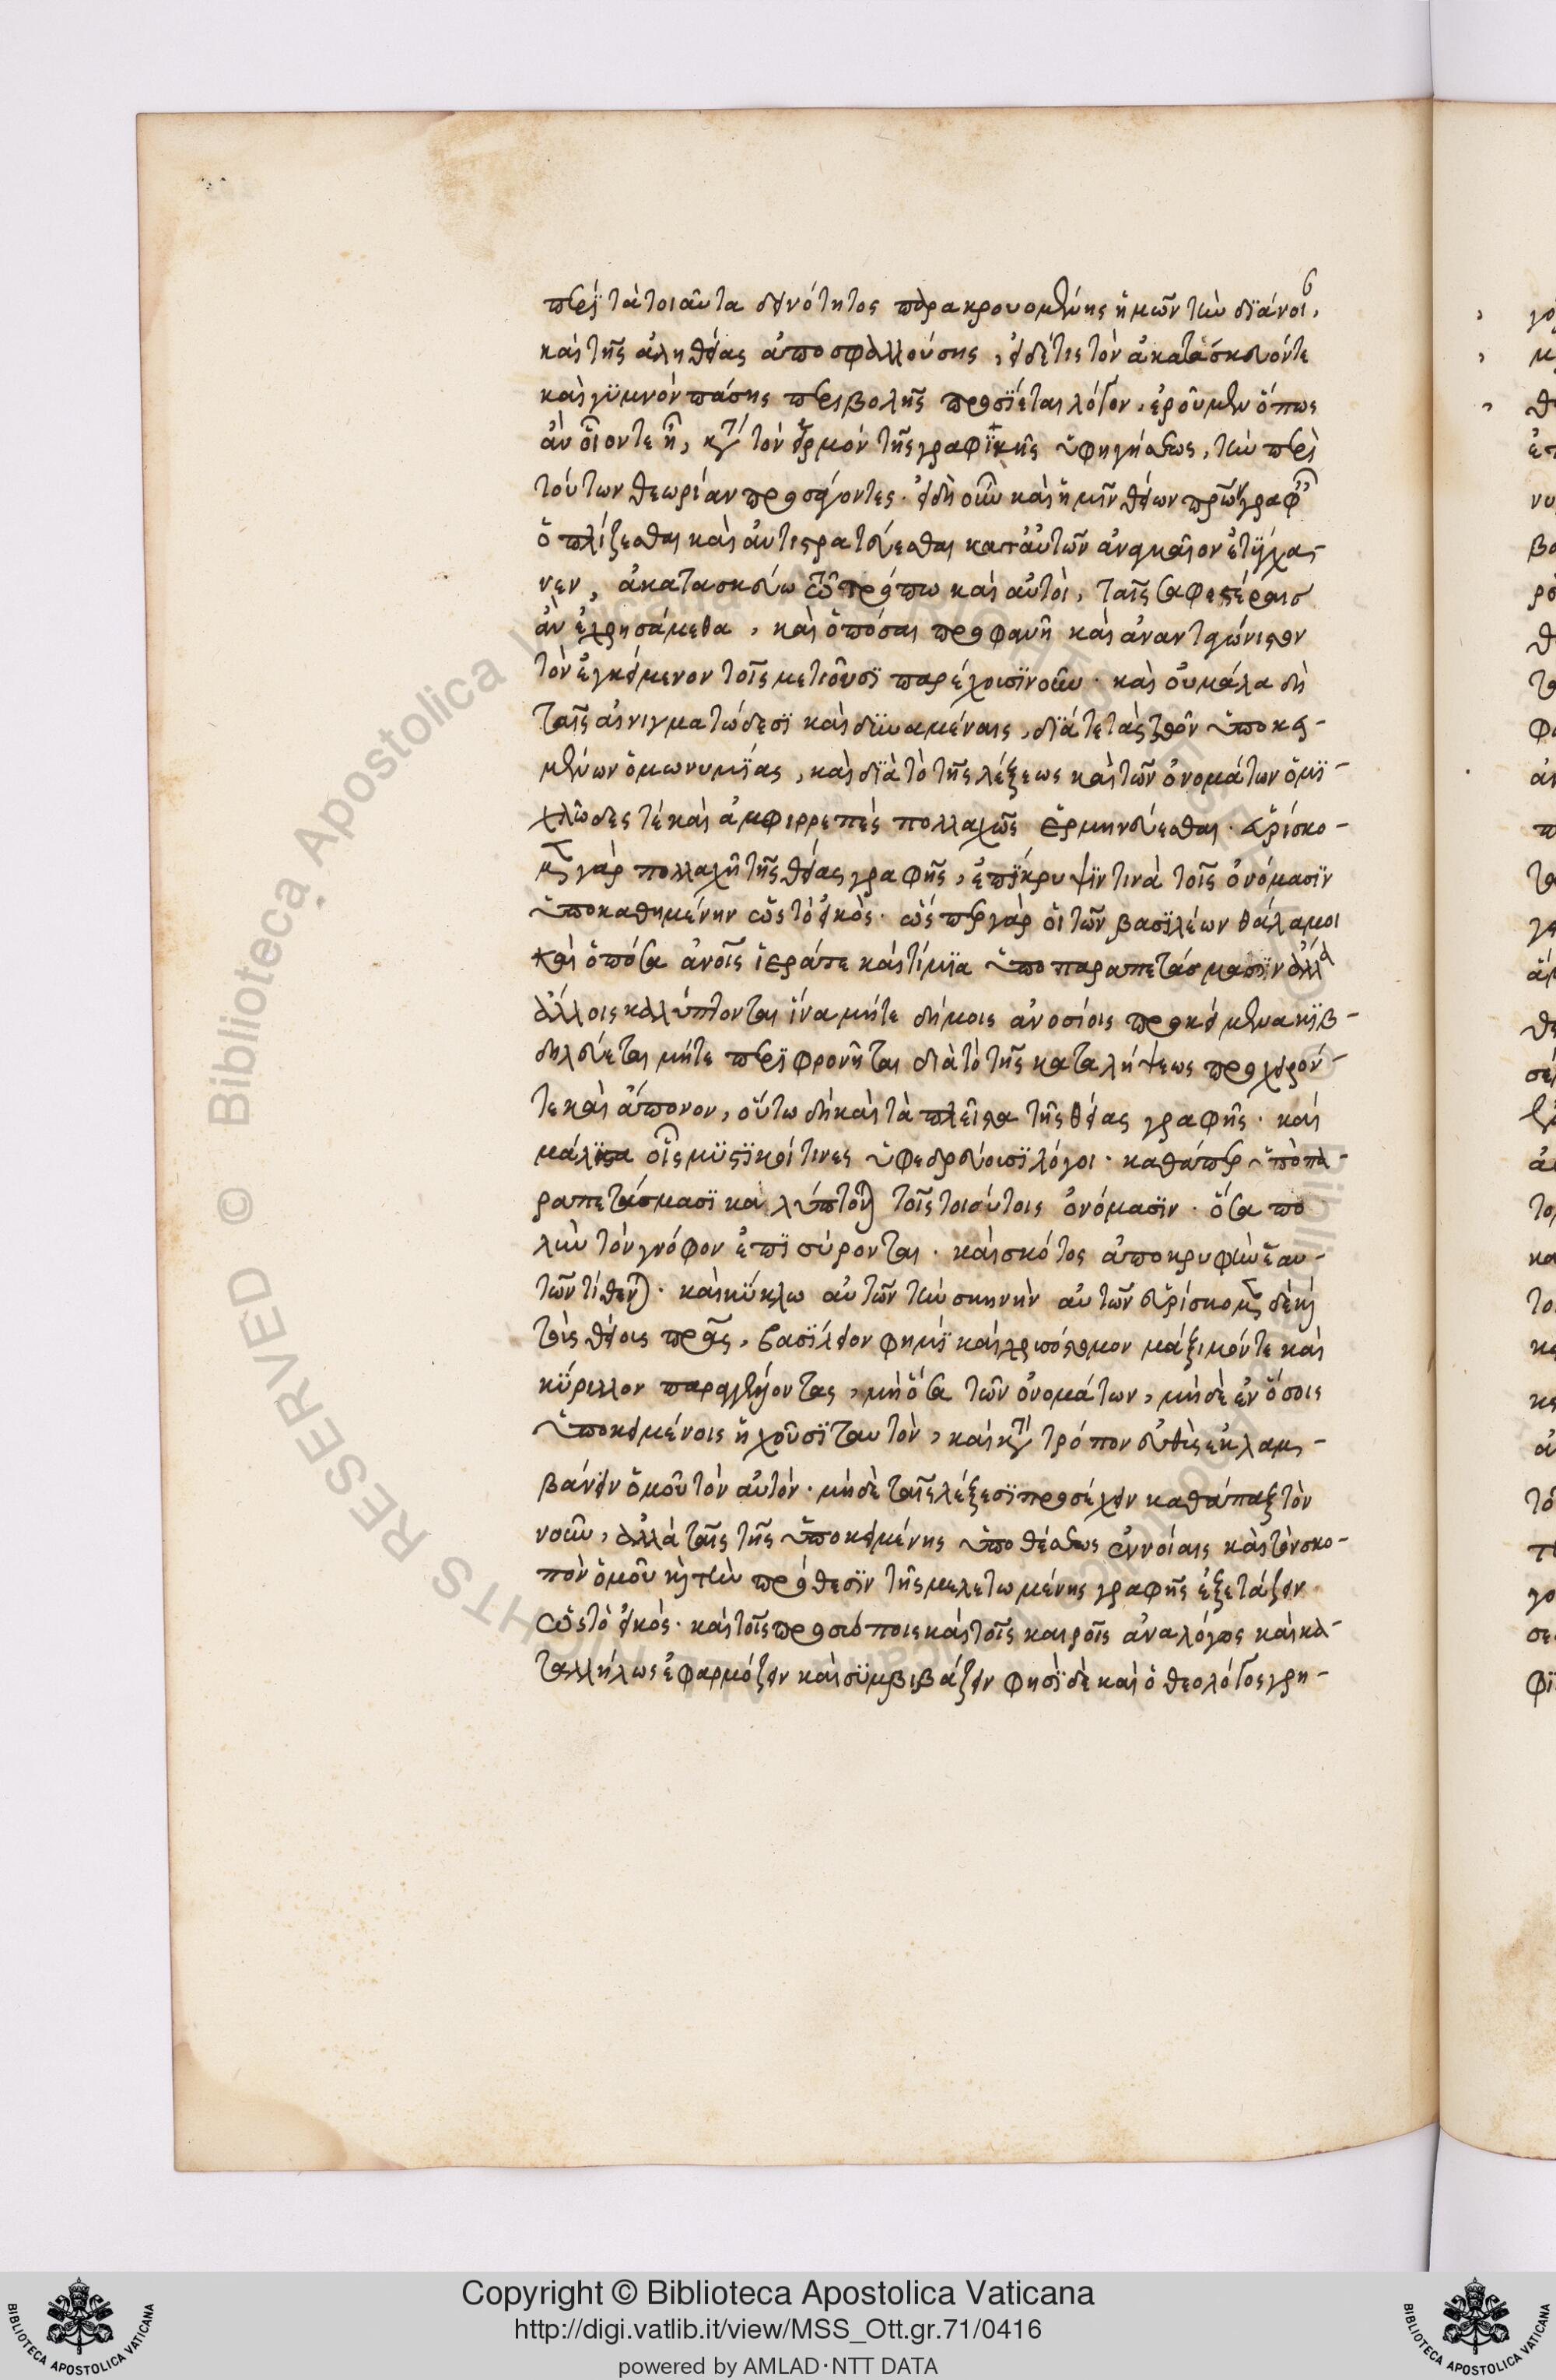 περὶ τὰ τοιαῦτα δεινότητος παρακρουομένης ἡμῶν τὴν διάνοι,
καὶ τῆς ἀληθείας ἀποσφαλλούσης, εἰ δέ τις τὸν ἀκατάσκευόν τε
καὶ γυμνὸν πάσης περιβολῆς προσίεται λόγον, ἐροῦμεν ὅπως
ἂν οἷον τε ᾖ, κατὰ τὸν εἱρμὸν τῆς γραφικῆς ὑφηγήσεως, τὴν περὶ
τούτων θεωρίαν προσάγοντες. εἰ δὴ οὖν καὶ ἡμῖν θείων γραφ
ὁπλίζεσθαι καὶ ἀντιστρατεύεσθαι κατ' αὐτῶν ἀναγκαῖον ἐτύγχα-
νεν, ἀκατασκεύω τῶ τρόπω καὶ αὐτοὶ, ταῖς σαφεστέραισ
ἂν ἐχρησάμεθα, καὶ ὁπόσαι προφανῆ καὶ ἀνανταγώνιστον
τὸν ἐγκείμενον τοῖς μετιοῦσι παρέχοισι νοῦν. καὶ οὐ μάλα δὴ
ταῖς αἰνιγματώδεσι καὶ δυναμέναις, διά τε τὰς τῶν ὑποκει-
μένων ὁμωνυμίας, καὶ διὰ τὸ τῆς λέξεως καὶ τῶν ὀνομάτων ὁμι-
χλῶδές τε καὶ ἀμφιρρεπὲς πολλαχῶς ἑρμηνεύεσθαι. εὑρίσκο-
μεν γὰρ πολλαχῆ τῆς θείας γραφῆς, ἐπίκρυψίν τινα τοῖς ὀνόμασιν
ὑποκαθημένην ὡς τὸ εἰκὸς. ὥσπερ γὰρ οἱ τῶν βασιλέων θάλαμοι
καὶ ὁπόσα ἀνοῖς ἱερά τε καὶ τίμια ὑπὸ παραπετάσμασιν ἄλλα
ἄλλοις καλύπτονται ἵνα μήτε δήμοις ἀνοσίοις προκείμενα κιβ-
δηλεύεται μήτε περιφρονῆται διὰ τὸ τῆς καταλήψεως πρόχειρόν
τε καὶ ἄπονον, οὕτω δὴ καὶ τὰ πλεῖστα τῆς θείας γραφῆς. καὶ
μάλιστα οἷς μυστικοί τινες ὑφεδρεύοισι λόγοι. καθάπερ ὑπὸ πα-
ραπετάσμασι καλύπτονται τοῖς τοιούτοις ὀνόμασιν. ὅσα πο
λὺν τὸν γνόφον ἐπισύρονται. καὶ σκότος ἀποκρυφὴν ἑαυ-
τῶν τίθενται. καὶ κύκλω αὐτῶν τὴν σκηνὴν αὐτῶν εὑρίσκομεν δὲ καὶ
τοὺς θείοις πρας, βασίλειον φημὶ καὶ χρυσόστομον μάξιμόν τε καὶ
κύριλλον παραγγέλλοντας, μὴ ὅσα τῶν ὀνομάτων, μὴ δὲ ἐν ὅσοις
ὑποκειμένοις ἠχοῦσι ταυτὸν, καὶ κατὰ τρόπον εὐθὺς ἐκλαμ-
βάνειν ὁμοῦ τὸν αὐτόν. μὴ δὲ ταῖς λέξεσι προσέχειν καθάπαξ τὸν
νοῦν, ἀλλὰ ταῖς τῆς ὑποκειμένης ὑποθέσεως ἐννοίαις καὶ τὸν σκο-
πὸν ὁμοῦ καὶ τὴν πρόθεσιν τῆς μελετωμένης γραφῆς ἐξετάζειν
ὡς τὸ εἰκὸς. καὶ τοῖς προσώποις καὶ τοῖς καιροῖς ἀναλόγως καὶ κα-
ταλλήλως ἐφαρμόζειν καὶ συμβιβάζειν φησὶ δὲ καὶ ὁ θεολόγος γρη-
Copyright © Biblioteca Apostolica Vaticana
http://digi.vatlib.it/view/MSS_Ott.gr.71/0416
powered by AMLAD·NTT DATA